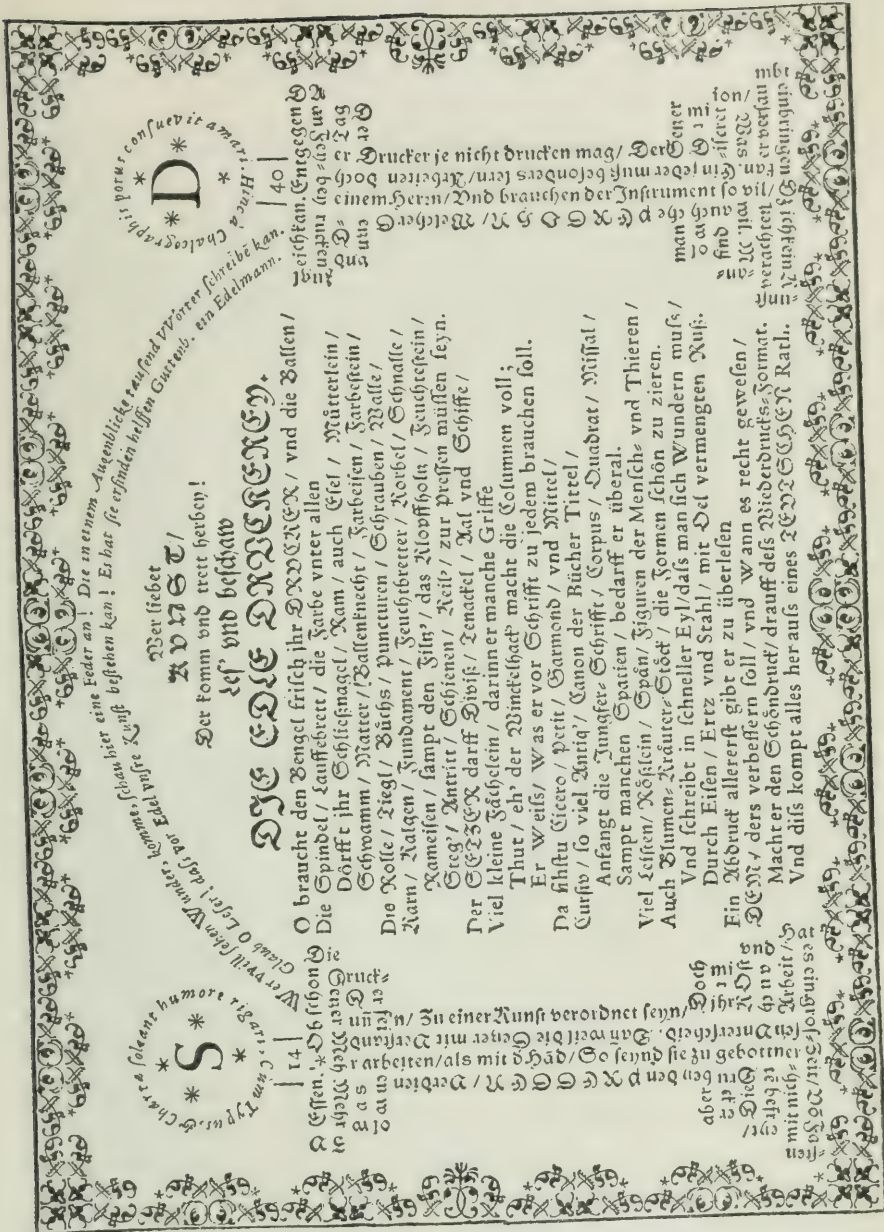 Wer will sehen Wunder, komme, schau hier eine Feder an! Die in einem Augenblicke tausend Wörter schreibē kan.
Glaub O Leser! dass vor Edel unsre Kunst bestehen kan! Es hat sie erfinden helffen Guttenb. ein Edelmann.
Charta soleant humore rigari. Cùm Typus, &
* S *
14
Chalcographis porus consuevit amari. Hinc à
* D *
40
Wer liebet
KUNST/
Der komm vnd trett herbey!
Les' vnd beschaw
DIE EDLE DRVCKEREY.
O braucht den Bengel frisch ihr DRVCKER/ vnd die Ballen/
Die Spindel/ Lauffebrett/ die Farbe vnter allen
Dörfft ihr Schliessnagel/ Ram/ auch Esel/ Mütterlein/
Schwamm/ Matter/ Ballenknecht/ Farbeisen/ Farbestein/
Die Rolle/ Tiegl/ Büchs/ Puncturen/ Schrauben/ Walle/
Karn/ Kalgen/ Fundament/ Feuchtbretter/ Korbel/ Schnalle/
Rameisen/ sampt den Filtz'/ das Klopffholtz/ Feuchtestein/
Steg'/ Antritt/ Schienen/ Keil'/ zur Pressen müssen seyn.
Der SETZER darff Diviß/ Tenackel/ Aal vnd Schiffe/
Viel kleine Fächelein/ darinner manche Griffe
Thut/ eh' der Winckelhack' macht die Columnen voll;
Er Weiss/ Was er vor Schrifft zu jedem brauchen soll.
Da sihstu Cicero/ Petit/ Garmond/ vnd Mittel/
Cursiv/ so viel Antiq'/ Canon der Bücher Tittel/
Anfangt die Jungfer-Schrifft/ Corpus/ Quadrat/ Missal/
Sampt manchen Spatien/ bedarff er überal.
Viel Leisten/ Rößlein/ Spän/ Figuren der Mensch- vnd Thieren/
Auch Blumen-Kräuter-Stöck/ die Formen schön zu zieren.
Vnd schreibt in schneller Eyl/ dass man sich Wundern muss/
Durch Eisen/ Ertz vnd Stahl/ mit Oel vermengten Ruß.
Ein Abdruck allererst gibt er zu überlesen
DEM/ ders verbessern soll/ vnd Wann es recht gewesen/
Macht er den Schöndruck/ drauff dess Wiederdrucks-Format.
Vnd diss kompt alles her auss eines TEVTSCHEN Rath.
Ob schon Die
Druck-
n/ Zu einer Kunst verordnet seyn/ Doch
sen Unterscheid. Dañ weil die Setzer mit Verstand
r arbeiten/ als mit d̄ Hād/ So seynd sie zu gebottner
ben den PREGGEN/ Verdien
Arbeit/ Hat
es ein gros-
mit nich-
eich kan. Entgegen
er Drucker je nicht drucken mag/ Der
kan. Ein jeder muß besonders sern/ Arbeiten doch
einem Herrn/ Vnd brauchen der Instrument so vil/
auch ehe
Welcher
verachten
einbringen